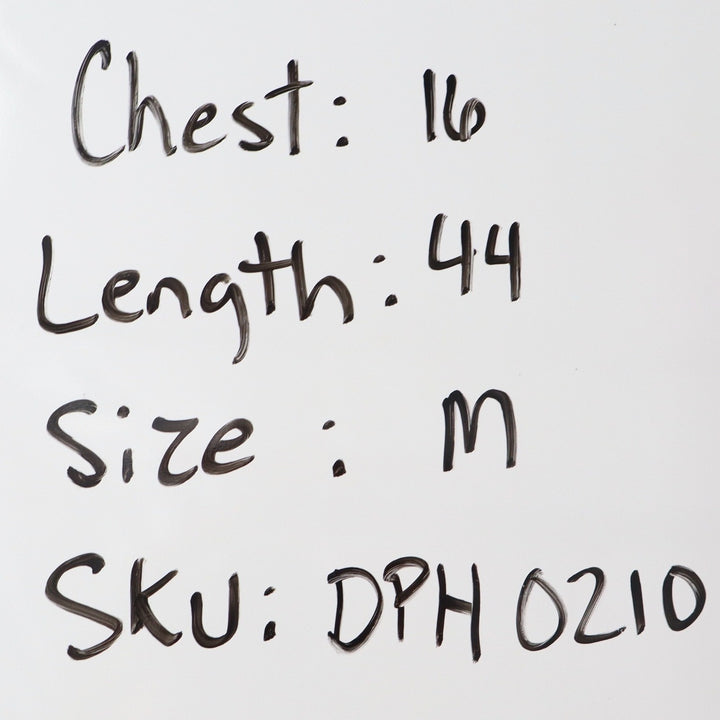 Chest: 16
Length: 44
Size : M
SKU: DPH 0210